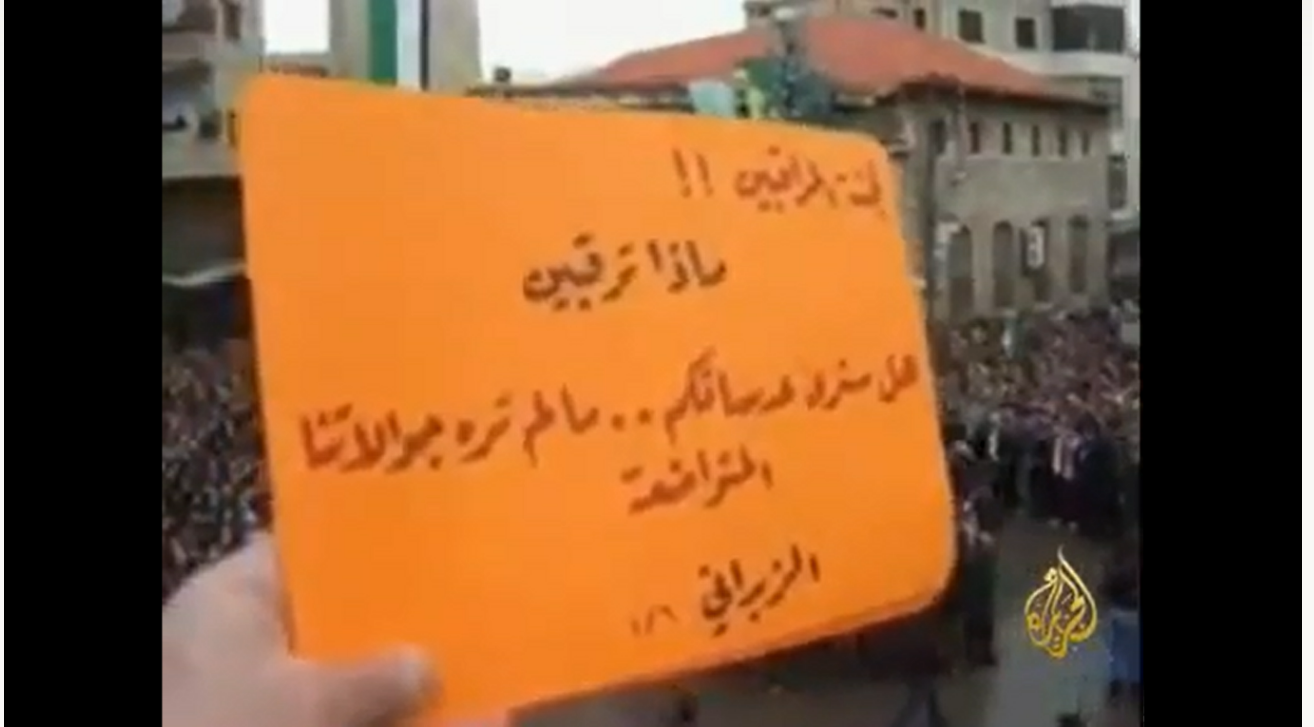 لجنة المراقبين !!
ماذا ترقبين
هل سترى عدساتكم .. ما لم تره جوالاتنا
المتواضعة
الزبداني ١/٦
الجزيرة